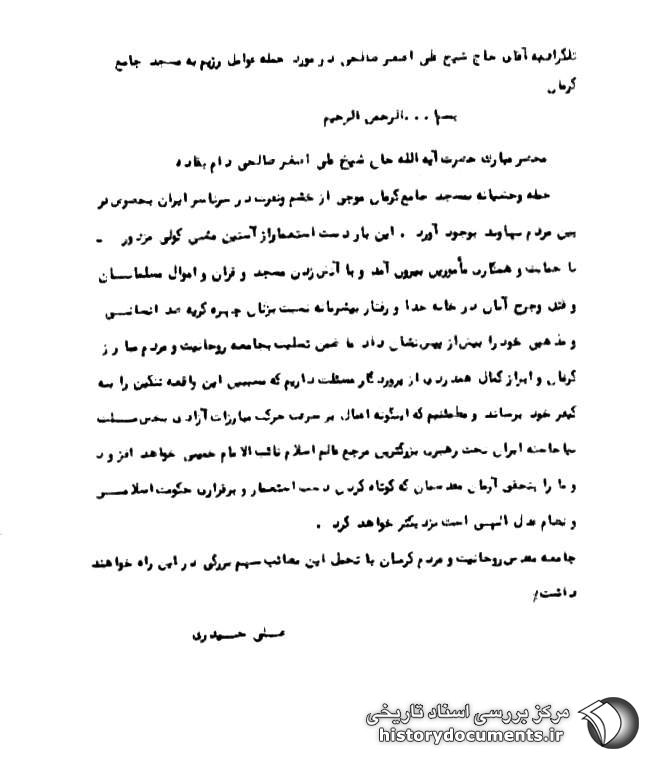 تلگراف به آقای حاج شیخ علی اصغر صالحی در مورد حمله عوامل رژیم به مسجد جامع
کرمان
بسم ا... الرحمن الرحیم
محضر مبارک حضرت آیه الله حاج شیخ علی اصغر صالحی دام بقاده
حمله وحشیانه بمسجد جامع کرمان موجی از خشم ونفرت در سرتاسر ایران بخصوص در
بین مردم بوجود آورد . این بار دست استعمار از آستین مشتی کولی مزدور -
با حمایت و همکاری مأمورین بیرون آمد و با آتش زدن مسجد و قران و اموال مسلمانان
و قتل وجرح آنان در خانه خدا و رفتار بیشرمانه نسبت بزنان چهره کریه ضد انسانی
و مذهبی خود را بیش از پیش نشان داد ما ضمن تسلیت بجامعه روحانیت و مردم مبارز
کرمان و ابراز کمال همدردی از پروردگار مسئلت داریم که مسببین این واقعه ننگین را به
کیفر خود برساند و مطمئنیم که اینگونه اعمال بر سرعت حرکت مبارزات آزادی بخش ملت
بپا خاسته ایران تحت رهبری بزرگترین مرجع عالم اسلام نائب الامام خمینی خواهد افزود
و ما را بتحقق آرمان مقدسمان که کوتاه کردن دست استعمار و برقراری حکومت اسلامی
و نظام عدل الهی است نزدیکتر خواهد کرد .
جامعه مقدس روحانیت و مردم کرمان با تحمل این مصائب سهم بزرگی در این راه خواهند
داشت/
علی حیدری
مرکز بررسی اسناد تاریخی
historydocuments.ir